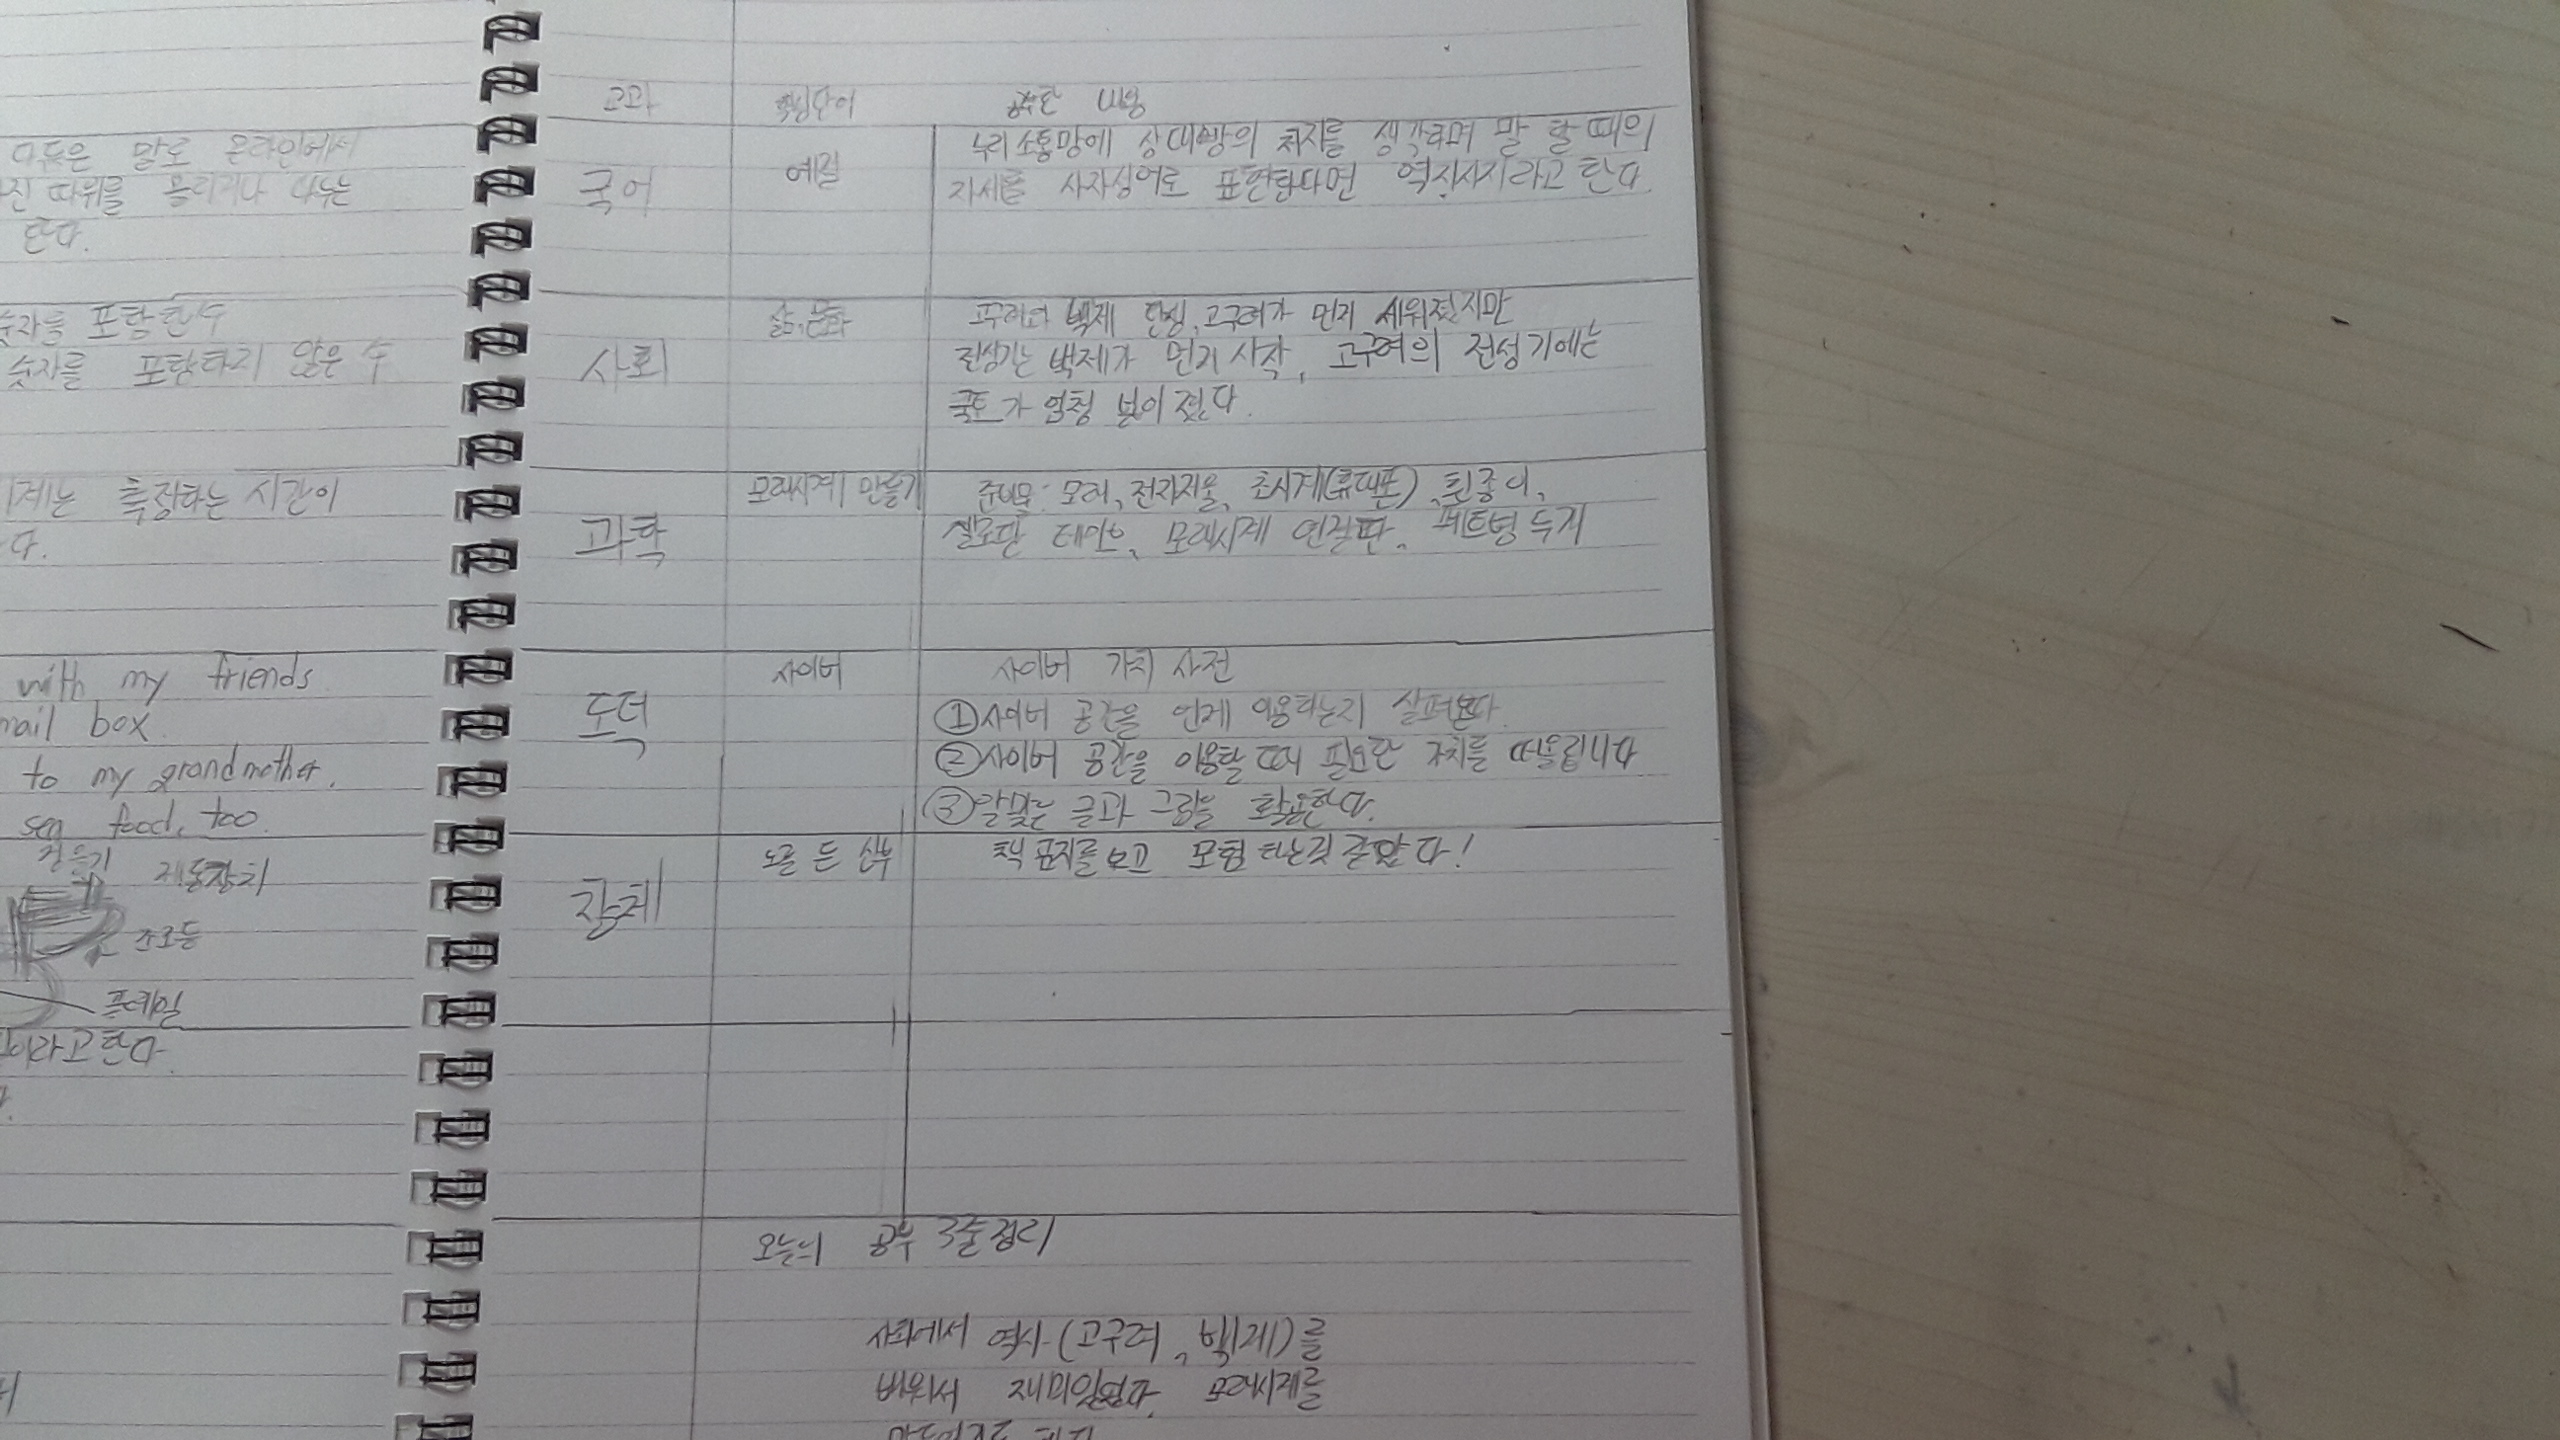 다듬은 말로 온라인에서
진 따위를 올리거나 나누는
한다.
숫자를 포함한 수
숫자를 포함하지 않은 수
계는 측정하는 시간이
다.
with my friends
mail box.
to my grandmother.
sea food, too.
제동장치
프레임
이라고 한다.
교과 핵심단어 공부한 내용
국어 예절 누리소통망에 상대방의 처지를 생각하며 말 할 때의
자세를 사자성어로 표현한다면 역지사지라고 한다.
사회 삶, 문화 고구려와 백제 탄생, 고구려가 먼저 세워졌지만
전성기는 백제가 먼저 시작, 고구려의 전성기에는
국토가 엄청 넓어졌다.
과학 모래시계 만들기 준비물: 모래, 전자저울, 초시계(휴대폰), 흰종이,
셀로판 테이프, 모래시계 연결판, 페트병 두개
도덕 사이버 사이버 가치 사전
①사이버 공간을 언제 이용하는지 살펴본다.
②사이버 공간을 이용할 때 필요한 가치를 떠올립니다
③알맞은 글과 그림을 활용한다.
창체 노를 든 신부 책 표지를 보고 모험 하는것 같았다!
오늘의 공부 3줄정리
사회에서 역사(고구려, 백제)를
배워서 재미있었다. 모래시계를